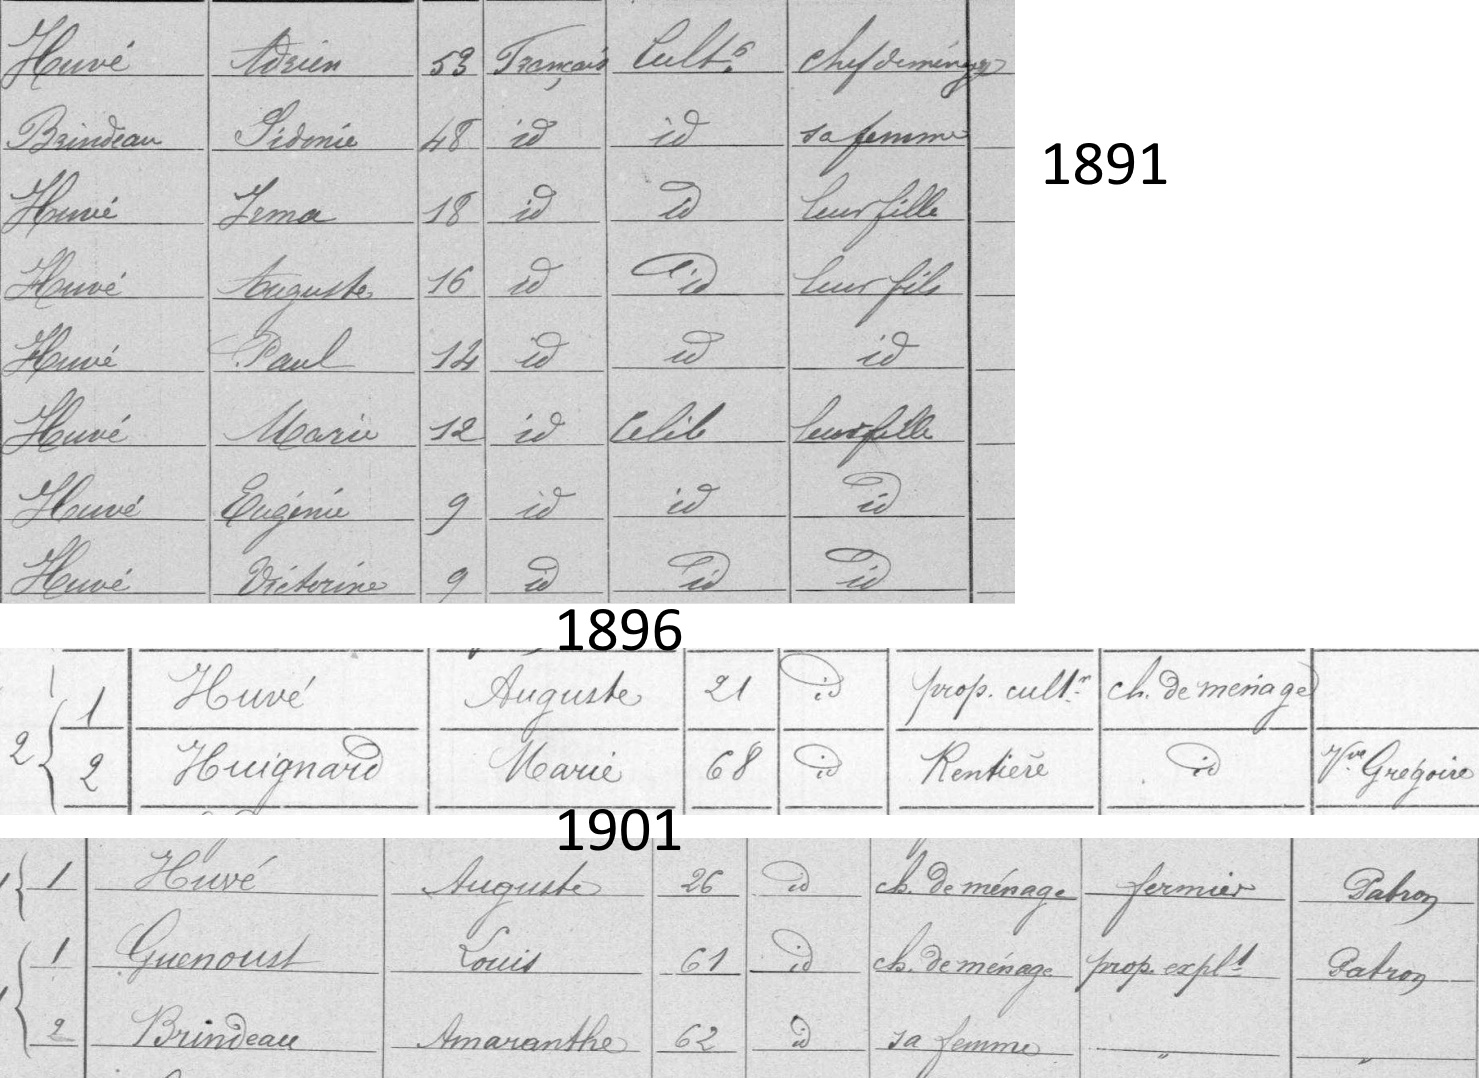 Huvé Adrien 53 Français Cultr chef de ménage
Brindeau Sidonie 48 id id sa femme
1891
Huvé Irma 18 id id leur fille
Huvé Auguste 16 id id leur fils
Huvé Paul 14 id id id
Huvé Marie 12 id Celib leur fille
Huvé Eugénie 9 id id id
Huvé Victorine 9 id id id
1896
1 Huvé Auguste 21 id prop. cultr ch. de menage
2 2 Huignard Marie 68 id Rentière id Vve Grégoire
1901
1 1 Huvé Auguste 26 id ch. de ménage fermier Patron
1 1 Guenoust Louis 61 id ch. de ménage prop. explt Patron
2 Brindeau Amaranthe 62 id sa femme " "